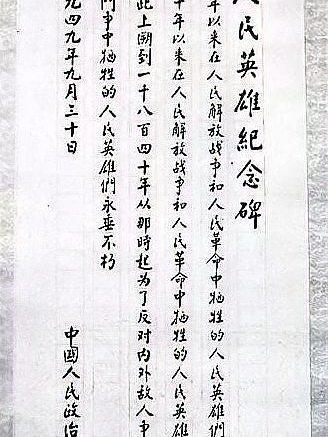 人民英雄紀念碑
年以来在人民解放战争和人民革命中牺牲的人民英雄們
十年以来在人民解放战争和人民革命中牺牲的人民英雄
此上溯到一千八百四十年从那時起为了反对内外敌人争
鬥争中牺牲的人民英雄們永垂不朽
九四九年九月三十日
中國人民政治